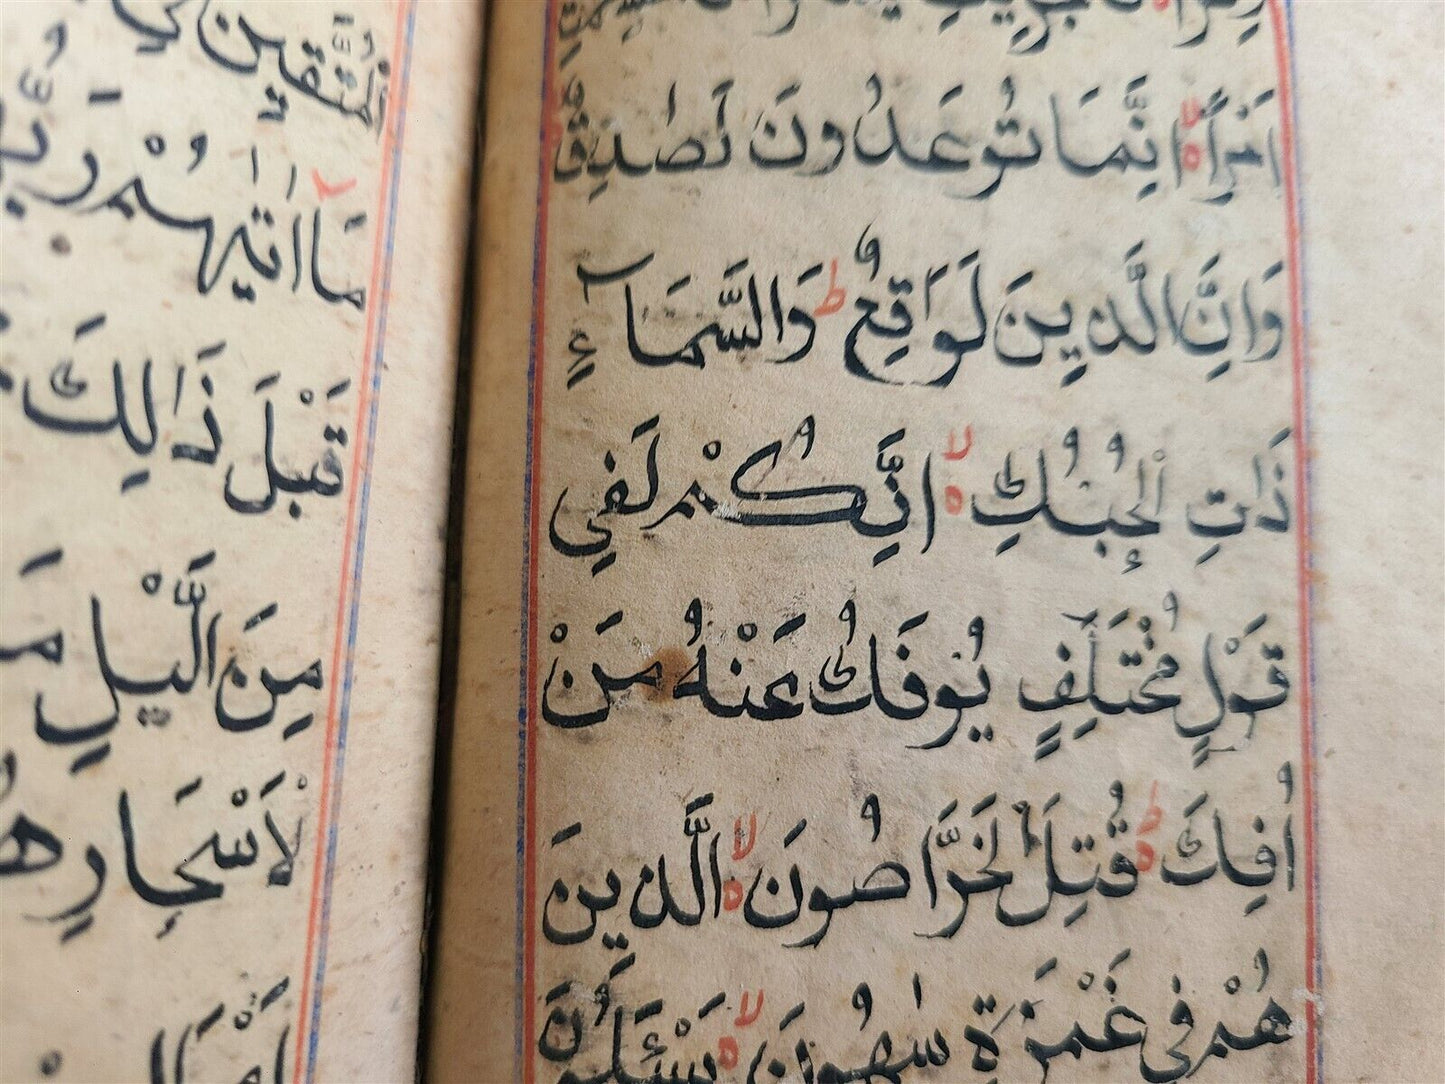 اَمْراً اِنَّمَا تُوعَدُونَ لَصَادِقٌ
وَاِنَّ الدِّينَ لَوَاقِعٌ ط وَالسَّمَآءِ
ذَاتِ الْحُبُكِ لا اِنَّكُمْ لَفِي
قَوْلٍ مُخْتَلِفٍ يُوفَكُ عَنْهُ مَنْ
اُفِكَ ط قُتِلَ الْخَرَّاصُونَ لا الَّذِينَ
هُمْ فِي غَمْرَةٍ سَاهُونَ لا يَسْئَلُونَ
الْمُتَّقِينَ فِي
مَا اٰتٰيهُمْ رَبُّهُ
قَبْلَ ذَالِكَ
مِنَ الَّيْلِ مَ
لْاَسْحَارِ هُ